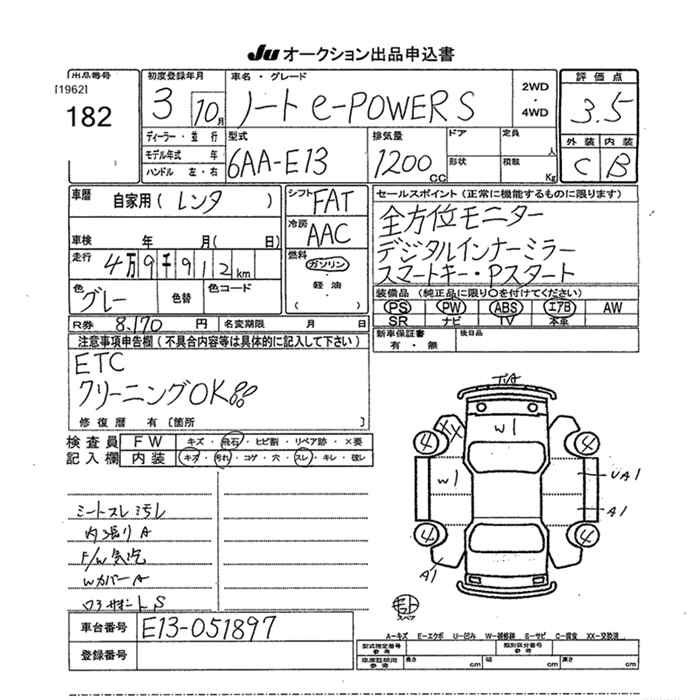 Ju オークション出品申込書
出品番号 初度登録年月 車名・グレード 評価点
[1962]
182
3 10月 ノート e-POWER S 2WD・4WD 3.5
ディーラー・並行 型式 排気量 ドア 定員 人 外装 内装
モデル年式 年 6AA-E13 1200cc 形状 積載 Kg C B
ハンドル 左・右
車歴 自家用(レンタ ) シフト FAT セールスポイント(正常に機能するものに限ります)
全方位モニター
車検 年 月( 日) 冷房 AAC デジタルインナーミラー
走行 4万9千912km 燃料 ガソリン・軽油・( ) スマートキー・Pスタート
色 グレー 色替 色コード 装備品(純正品に限り○を付けてください)
PS PW ABS エアB AW
R券 8,170円 名変期限 月 日 SR ナビ TV 本革
注意事項申告欄(不具合内容等は具体的に記入して下さい) 新車保証書 有・無 後日品
ETC
クリーニングOK
修復歴 有[箇所 ]
検査員 FW キズ・飛石・ヒビ割・リペア跡・×要
記入欄 内装 キズ・汚れ・コゲ・穴・スレ・キレ・破レ
シートスレ汚レ
内張りA
Wカバー A
車台番号 E13-051897
登録番号
4 W1 4
W1 UA1
A1
4 4
A1
スペア
A-キズ E-エクボ U-凹み W-補修跡 S-サビ C-腐食 XX-交換済
型式指定番号 参考 類別区分番号 参考
車庫証明用 参考 長さ cm 幅 cm 高さ cm